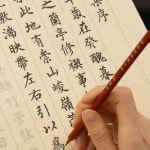 集序
歲在癸醜暮
之蘭亭修禊事
此地有崇山峻嶺
湍映帶左右引以為